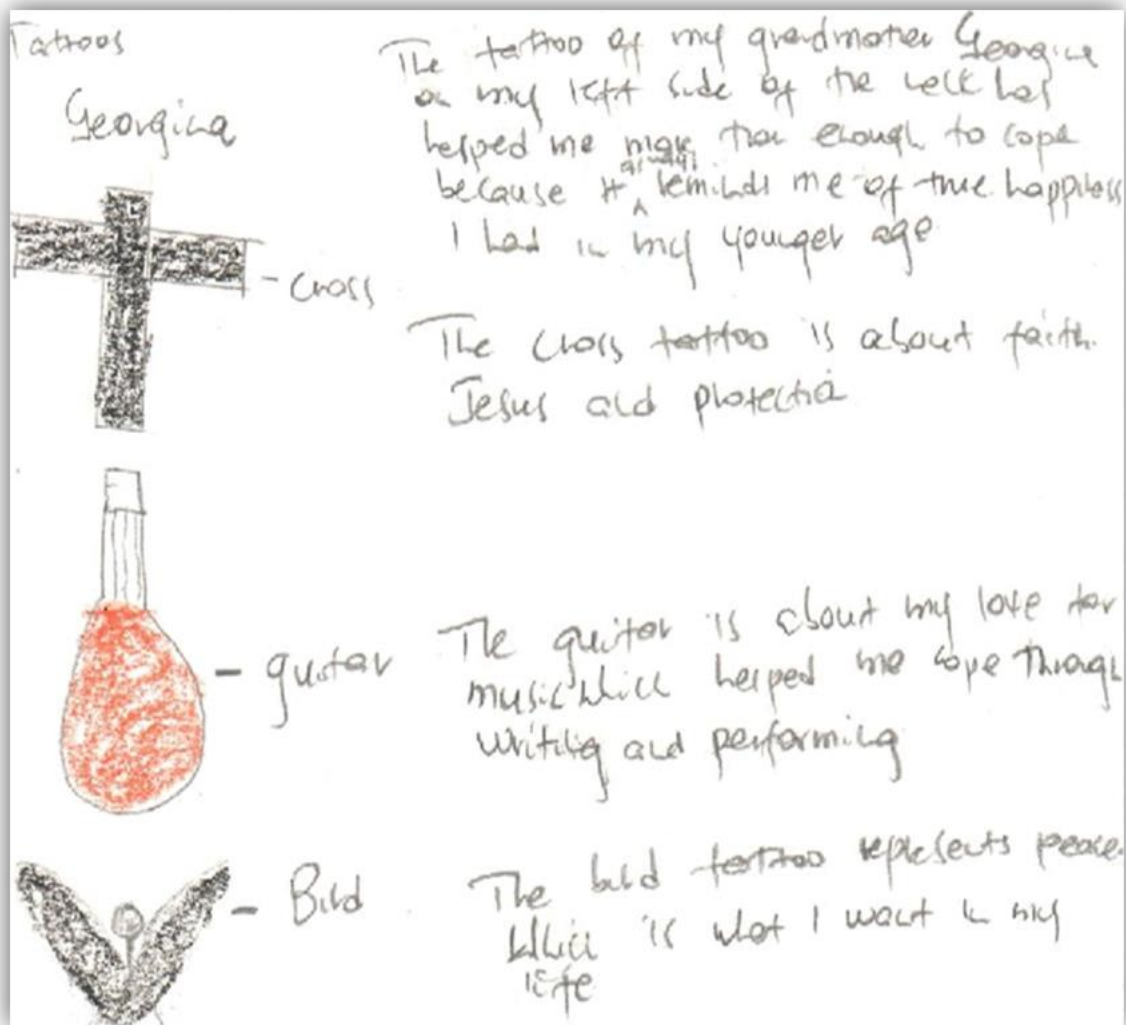 Tattoos
Georgina
The tattoo of my grandmother Georgina
on my left side of the neck has
helped me more than enough to cope
because it always reminds me of true happiness
I had in my younger age
- Cross
The cross tattoo is about faith.
Jesus and protection
- guitar
The guitar is about my love for
music which helped me cope through
writing and performing
- Bird
The bird tattoo represents peace.
which is what I want in my
life